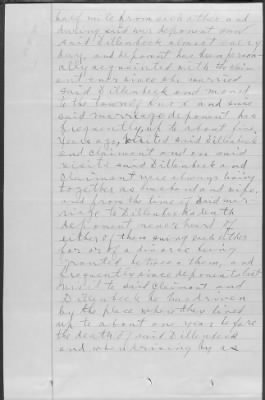 half mile from each other and
during said war deponent saw
said Dillenbeck almost every
day, and deponent has been person-
ally acquainted with the claim
ant ever since she married
said Dillenbeck and moved
to the town of and since
said marriage deponent has
frequently, up to about five
years ago, visited said Dillenbeck
and claimant and on said
visits said Dillenbeck and
claimant were always living
together as husband and wife,
and from the time of said mar-
riage to Dillenbecks death
deponent never heard of
either of them suing each other
for or of a divorce being
granted between them, and
frequently since deponents last
visit to said claimant and
Dillenbeck he has driven
by the place where they lived
up to about one year before
the death of said Dillenbeck
and when driving by as